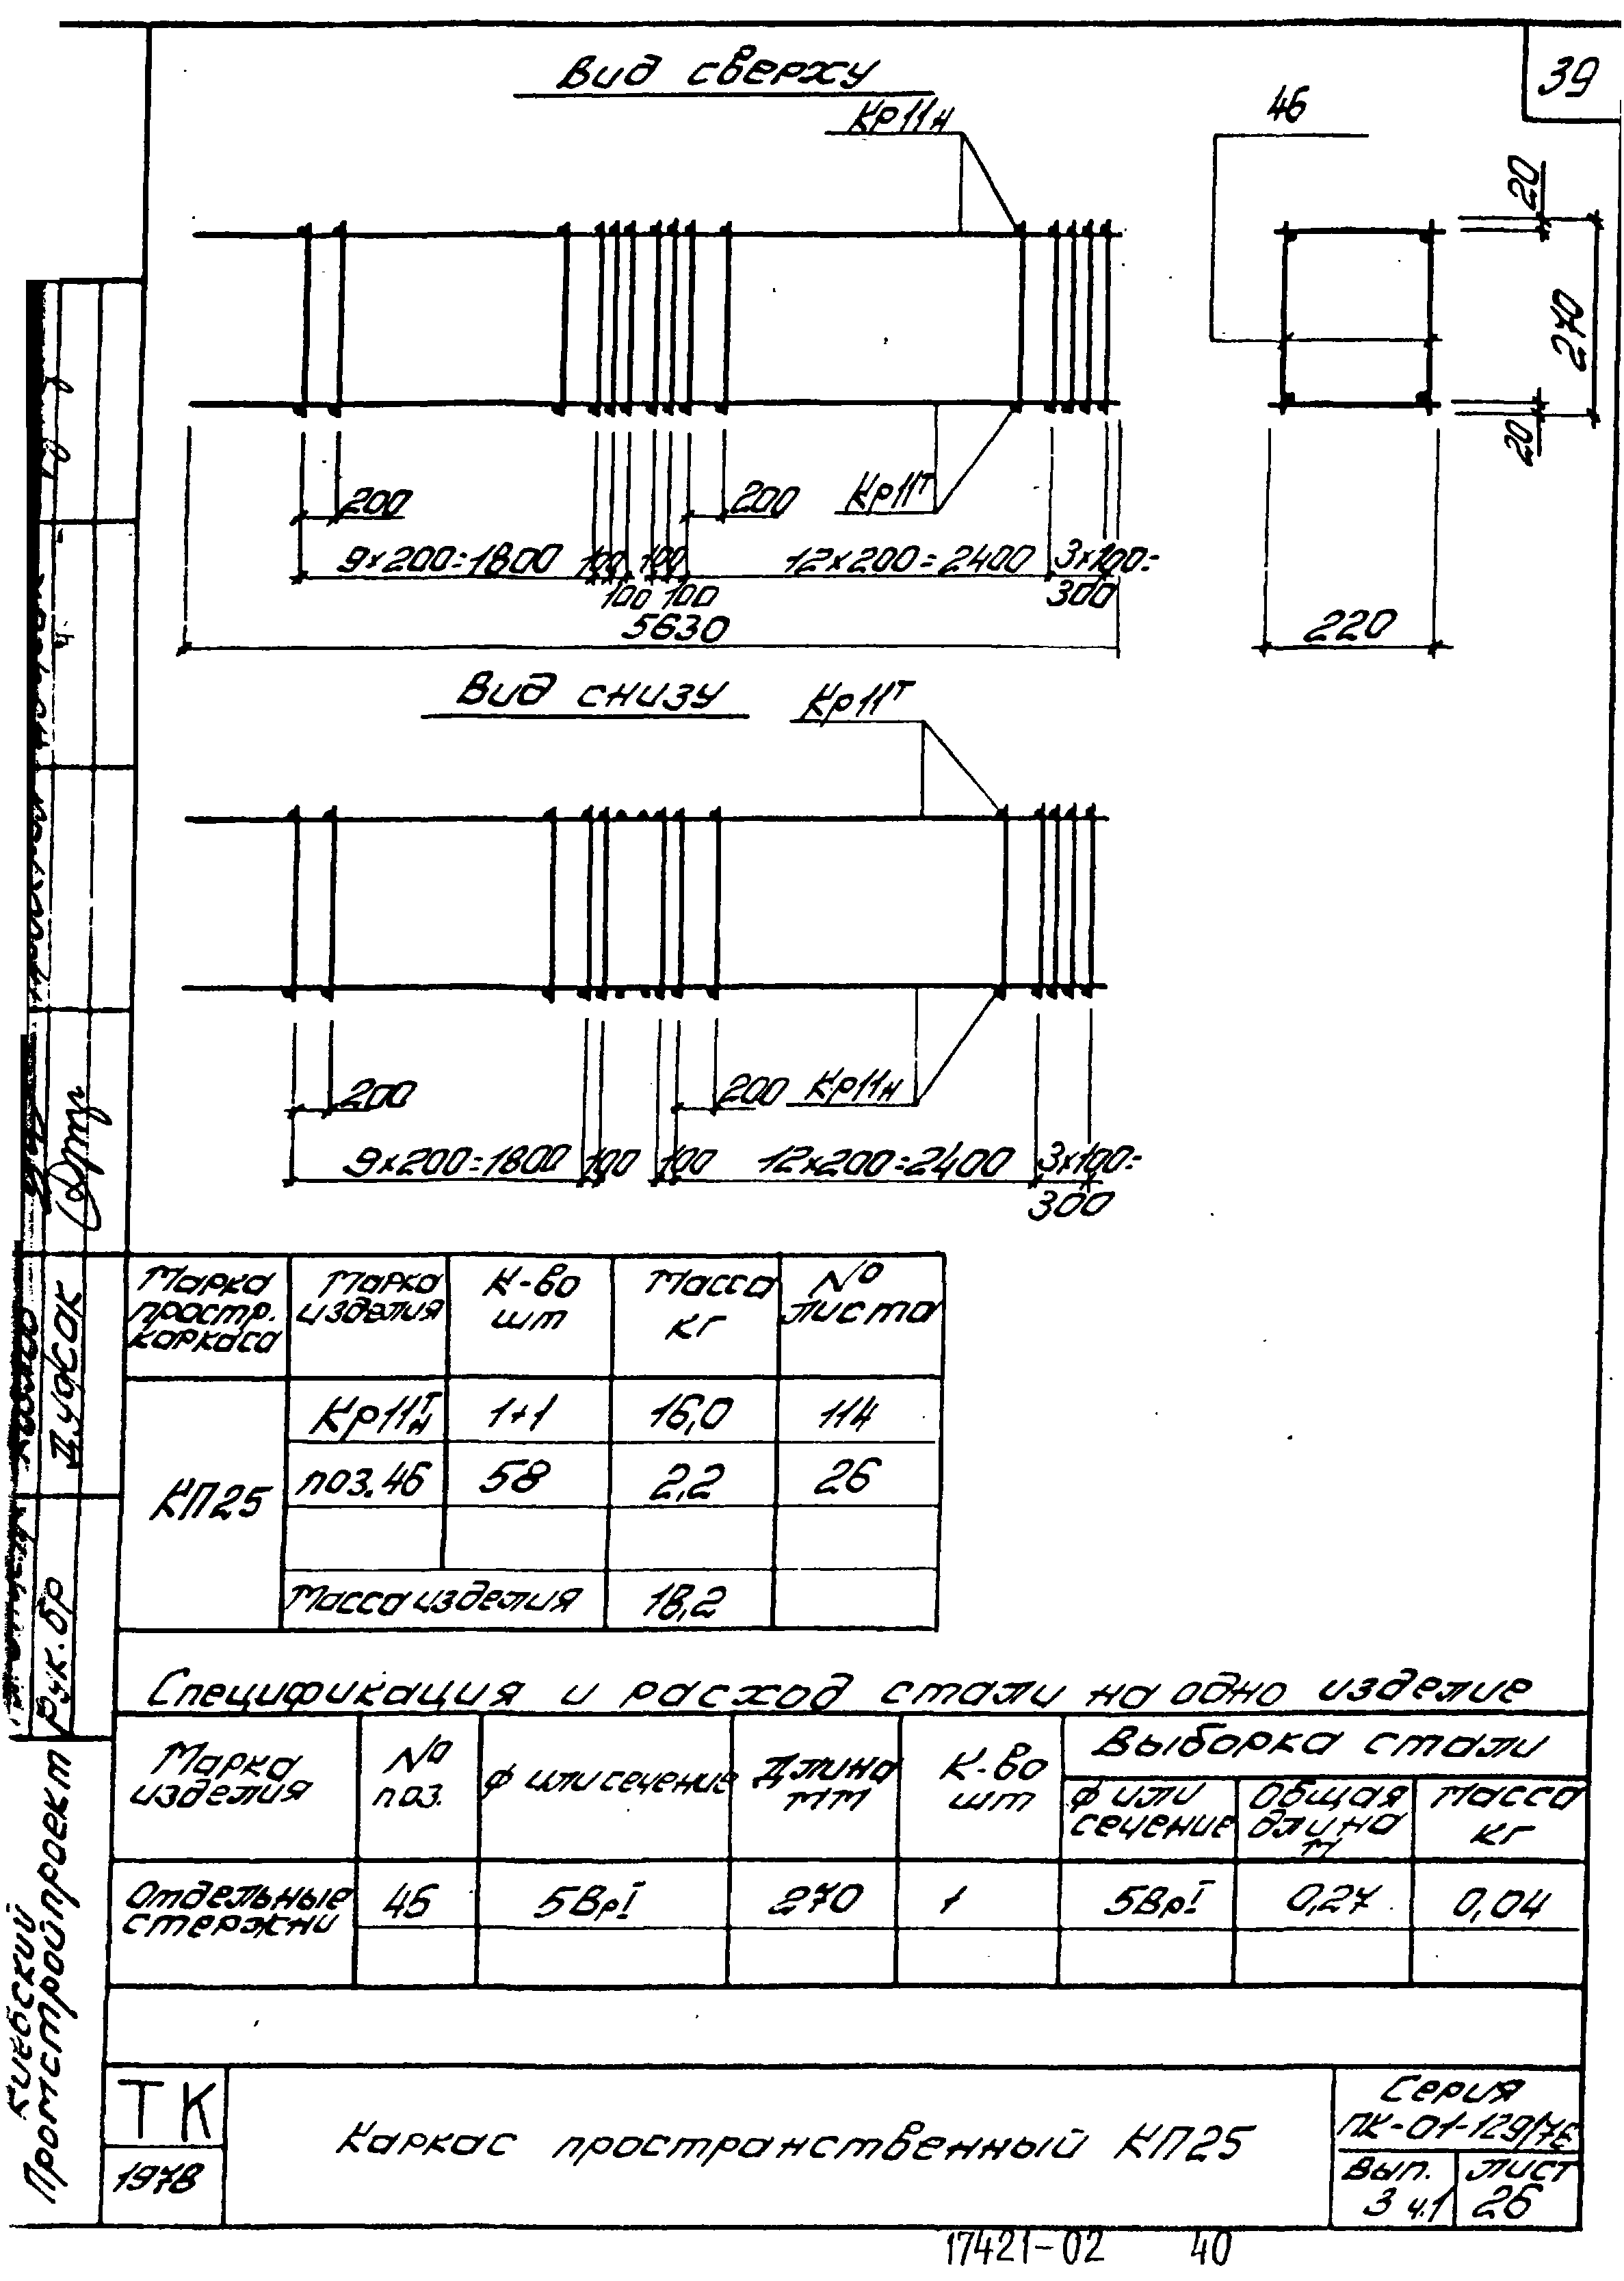 39
Вид сверху
Кр11н
46
20
270
20
220
200
200
Кр11т
9×200=1800 100 100 12×200=2400 3×100=
100 100 300
5630
Вид снизу
Кр11т
200
200
Кр11н
9×200=1800 100 100 12×200=2400 3×100=
300
Марка простр. каркаса
Марка изделия
К-во шт
Масса кг
№ листа
КП25
Кр11т/н 1+1 16,0 114
поз.46 58 2,2 26
Масса изделия 18,2
Спецификация и расход стали на одно изделие
Марка изделия
№ поз.
ф или сечение
Длина мм
К-во шт
Выборка стали
ф или сечение
Общая длина м
Масса кг
Отдельные стержни
46 5ВрI 270 1 5ВрI 0,27 0,04
ТК
1978
Каркас пространственный КП25
Серия
ПК-01-129/78
Вып. 3 ч.1
Лист 26
17421-02 40
Рук. бр
Дуусак
Киевский
Промстройпроект